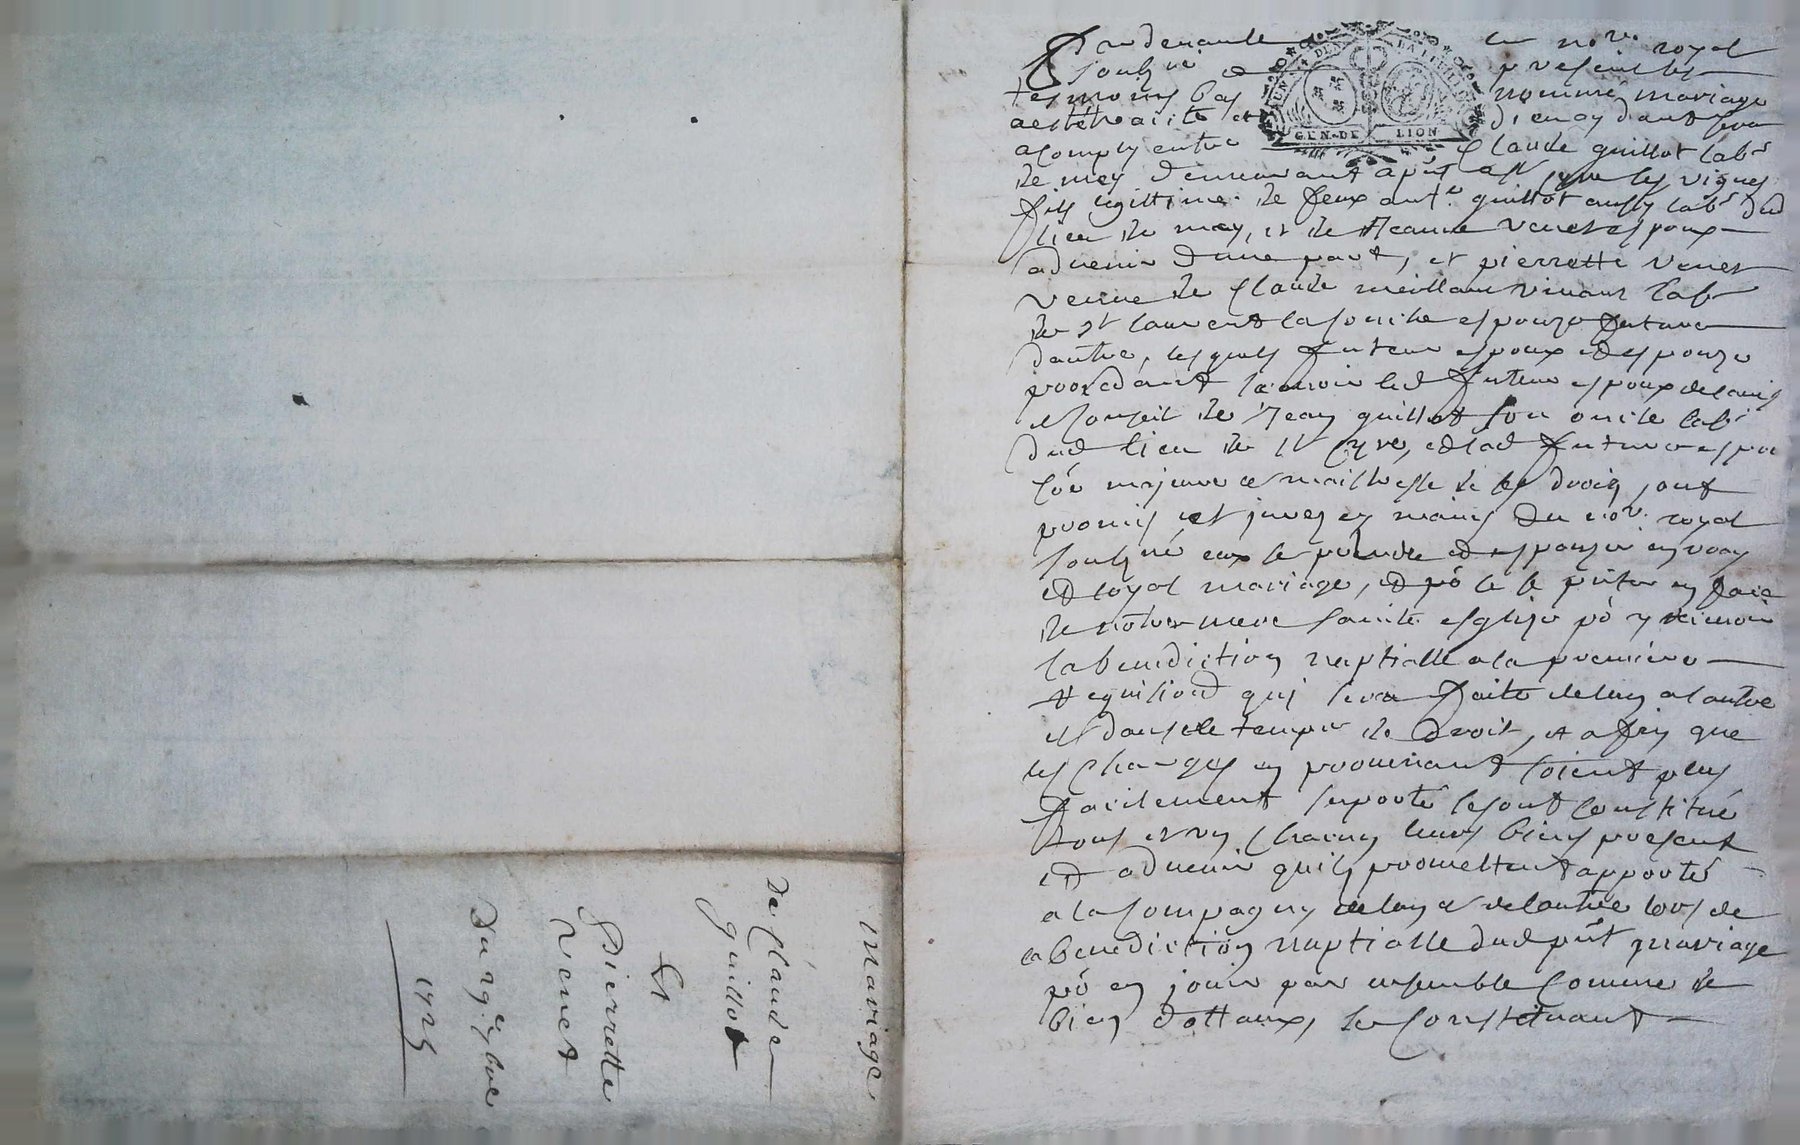 mariage
De Claude
guillot
Et
Pierrette
Venet
Du 29e xbre
1725
Pardevant le nore royal
soubzné et presents les
tesmoins bas nommé mariage
a esté traité et Dieu aydant sera
acomply entre Claude guillot labr
de mey demeurant a st Cyre les vignes
fils legittime de feux ant.e guillot aussy labr dud
lieu de mey, et de Jeanne Venet espoux
advenir dune part, et pierrette Venet
veuve de Claude meillan vivant labr
de st laurent la conche espouze future
dautre, lesquels futeur espoux et espouze
procedant scavoir led futeur espoux de lavis
et conseil de Jean guillot son oncle labr
dud lieu de st Cyre, et lad future espou
zée majeure et maitresse de ses droits, ont
promis et jurez es mains du nore royal
soubzné eux se prendre et espouzer en vray
et loyal mariage, et po ce se pnter en face
de notre mere sainte esglize po y recevoir
la benediction nuptialle a la premiere
requisiond qui sera faite de lun a lautre
et dans le temps de droit, et afin que
les charges en provenant soient plus
facilement suporté se sont constitué
tous et un chacun leurs biens present
et advenir quils promettent apporté
a la compagny de lun et de lautre lors de
la benediction nuptialle dud pnt mariage
po en jouir par ensemble comme de
bien dottaux, se constituant
GEN. DE LION